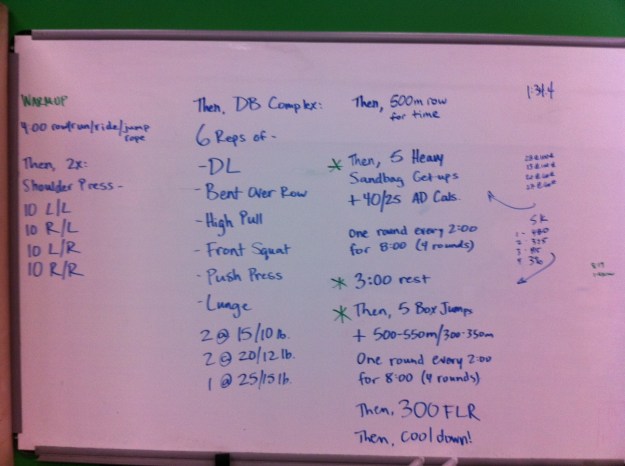 WARMUP
4:00 row/run/ride/jump
rope
Then, 2x:
Shoulder Press -
10 L/L
10 R/L
10 L/R
10 R/R
Then, DB Complex:
6 Reps of -
- DL
- Bent Over Row
- High Pull
- Front Squat
- Push Press
- Lunge
2 @ 15/10 lb.
2 @ 20/12 lb.
1 @ 25/15 lb.
Then, 500m row
for time
* Then, 5 Heavy
Sandbag Get-ups
+ 40/25 AD Cals.
One round every 2:00
for 8:00 (4 rounds)
* 3:00 rest
* Then, 5 Box Jumps
+ 500-550m/300-350m
One round every 2:00
for 8:00 (4 rounds)
Then, 300 FLR
Then, cool down!
1:34.4